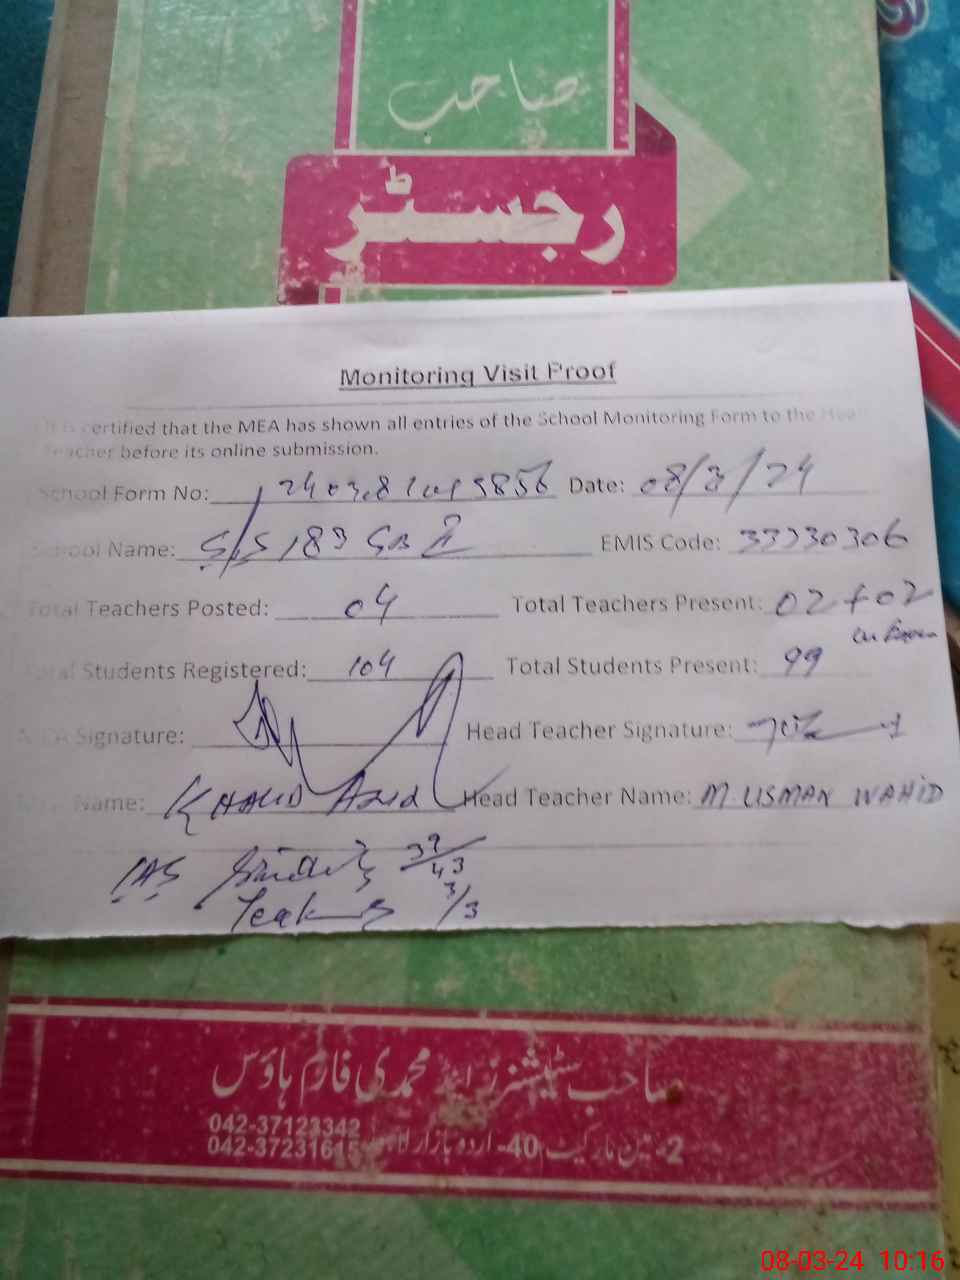 صاحب
رجسٹر
Monitoring Visit Proof
It is certified that the MEA has shown all entries of the School Monitoring Form to the Head
Teacher before its online submission.
School Form No: Date: 08/3/24
School Name: 183 GB EMIS Code: 33230306
Total Teachers Posted: 04 Total Teachers Present: 02+02
Total Students Registered: 104 Total Students Present: 99
MEA Signature: Head Teacher Signature:
MEA Name: KHALID Head Teacher Name: M. USMAN WAHID
Students 39/43
3/3
صاحب سٹیشنرز اینڈ محمدی فارم ہاؤس
042-37123342
2- مین مارکیٹ 40- اردو بازار لاہور 042-37231615
08-03-24 10:16